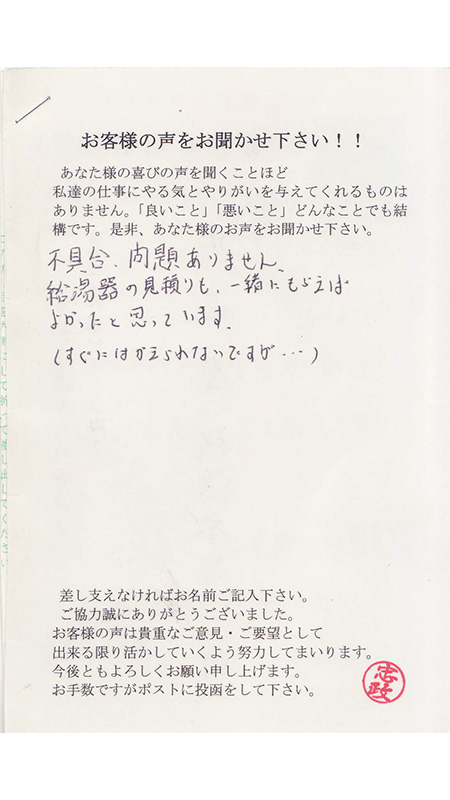 お客様の声をお聞かせ下さい！！
あなた様の喜びの声を聞くことほど
私達の仕事にやる気とやりがいを与えてくれるものは
ありません。「良いこと」「悪いこと」どんなことでも結
構です。是非、あなた様のお声をお聞かせ下さい。
不具合、問題ありません。
給湯器の見積りも、一緒にもらえば
よかったと思っています。
(すぐにはかえられないですが…)
差し支えなければお名前ご記入下さい。
ご協力誠にありがとうございました。
お客様の声は貴重なご意見・ご要望として
出来る限り活かしていくよう努力してまいります。
今後ともよろしくお願い申し上げます。
お手数ですがポストに投函をして下さい。
忠政